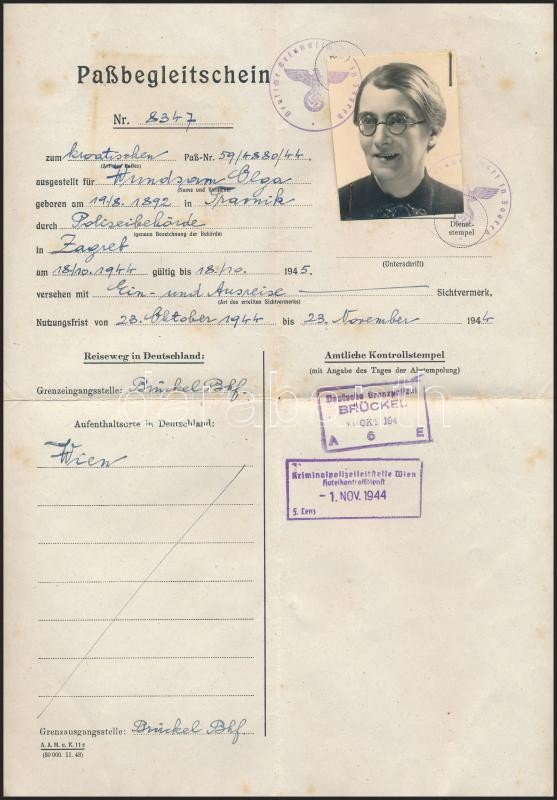 Paßbegleitschein
Nr. 8347
zum kroatischen Paß-Nr. 59/4880/44,
(Art des Passes)
ausgestellt für Wundsam Olga
(Name und Vorname)
geboren am 19/8. 1892 in Travnik
durch Polizeibehörde
(genaue Bezeichnung der Behörde)
in Zagreb
am 18/10. 1944 gültig bis 18/10. 1945.
versehen mit Ein- und Ausreise Sichtvermerk,
(Art des erteilten Sichtvermerks)
Nutzungsfrist von 23. Oktober 1944 bis 23. November 1944
Dienst-
stempel
(Unterschrift)
Reiseweg in Deutschland:
Grenzeingangsstelle: Brückel Bhf.
Aufenthaltsorte in Deutschland:
Wien
Grenzausgangsstelle: Brückel Bhf.
A. A. M. u. R. 11 c
(80 000. 11. 43)
Amtliche Kontrollstempel
(mit Angabe des Tages der Abstempelung)
Deutsche Grenzpolizei
BRÜCKEL
OKT. 194
A 6 E
Kriminalpolizeileitstelle Wien
Hotelkontrolldienst
-1. NOV. 1944
darabanth